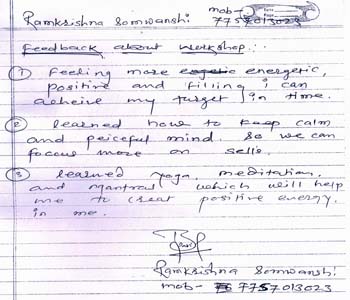 Ramkrishna Somwanshi mob-
7757013023
Feedback about workshop:
① Feeling more energetic,
positive and filling i can
acheive my target in time.
② learned how to keep calm
and peiceful mind. so we can
foccus more on sells.
③ learned yoga, meditation,
and mantra which will help
me to creat positive energy.
in me.
Ramkrishna Somwanshi
mob- 7757013023